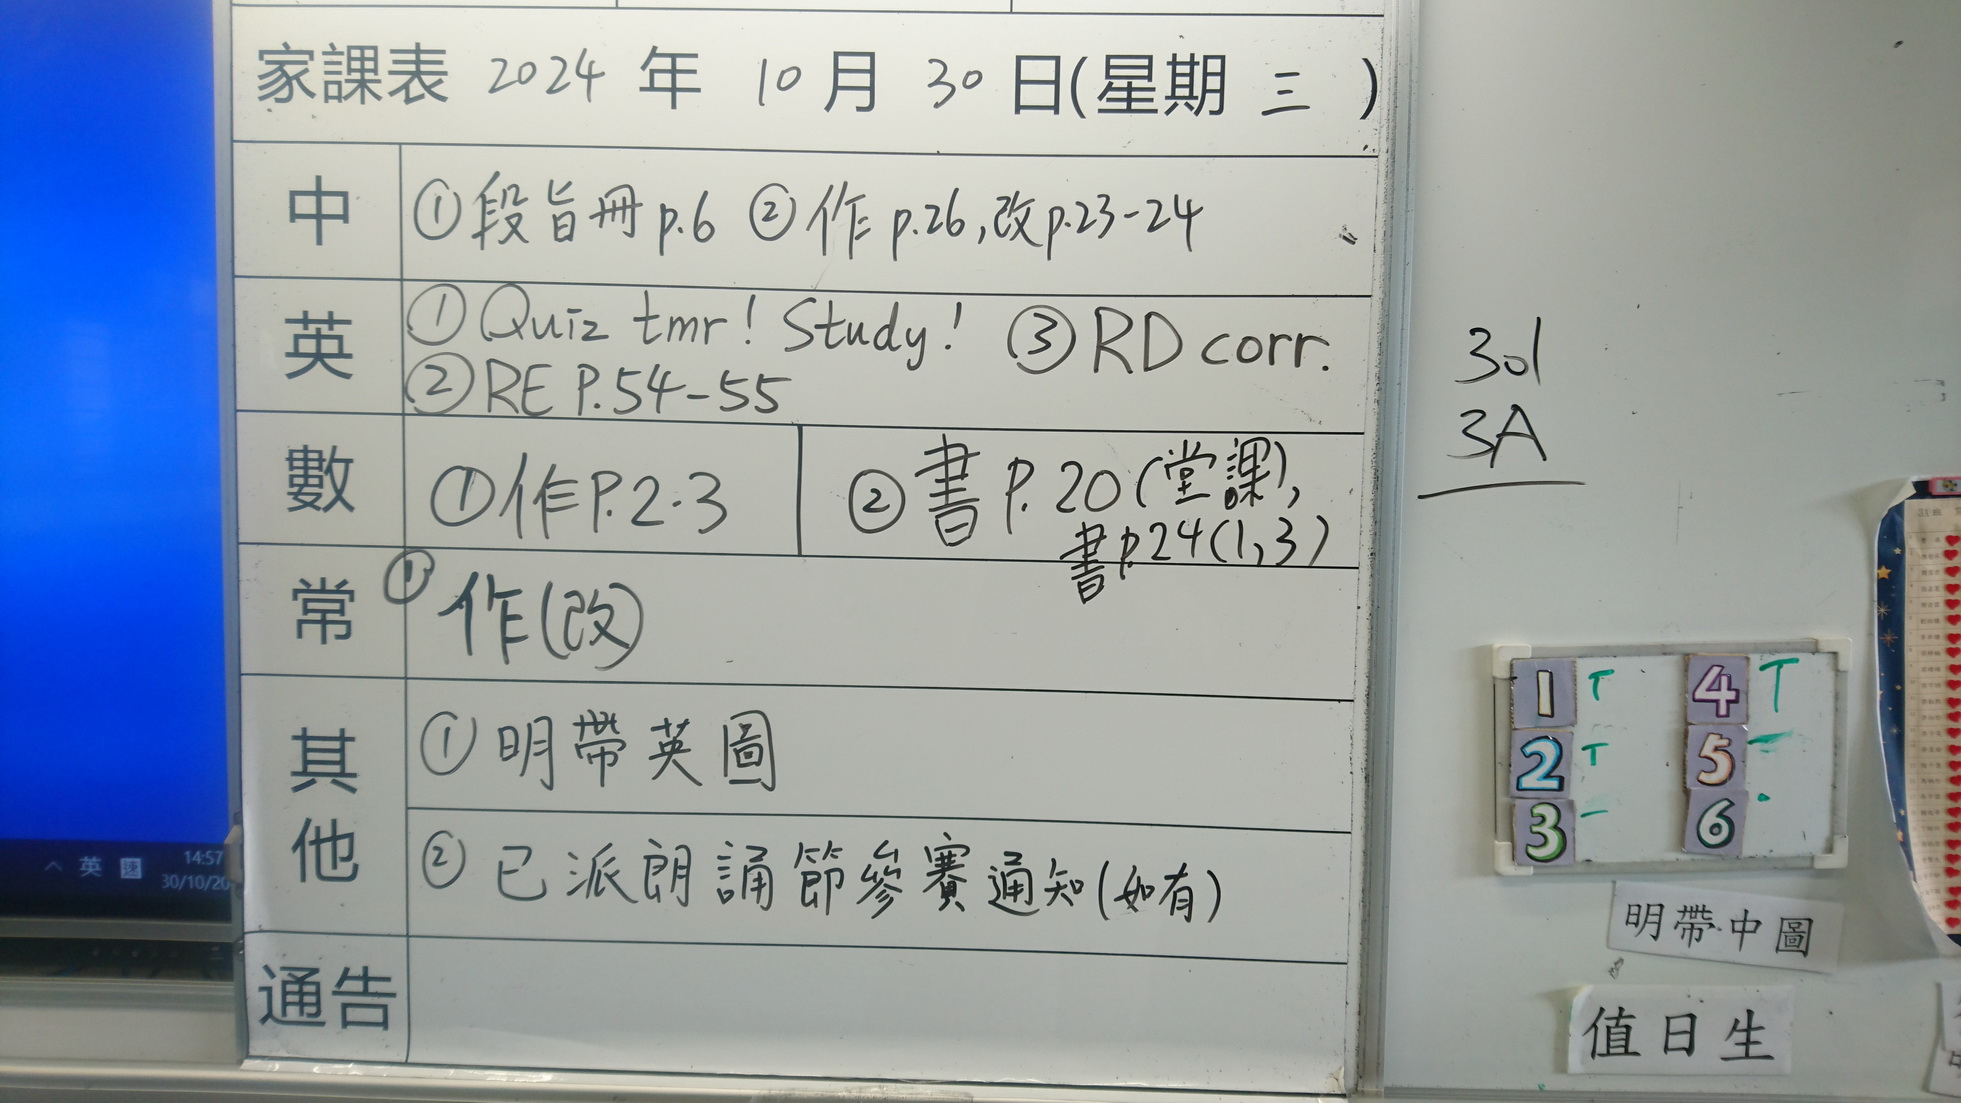 家課表 2024 年 10 月 30 日(星期 三 )
中
①段旨冊p.6 ②作p.26,改p.23-24
英
①Quiz tmr! Study! ③RD corr.
②RE P.54-55
數
①作P.2-3
②書P.20(堂課),
書p.24(1,3)
常
① 作(改)
其他
① 明帶英圖
② 已派朗誦節參賽通知(如有)
通告
301
3A
1 T 4 T
2 T 5
3 6
明帶中圖
值日生
英
14:57
30/10/20